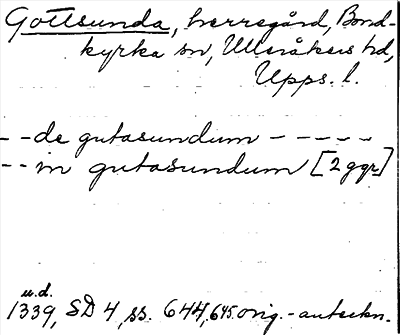 Gottsunda, herregård, Bond-
kyrka sn, Ulleråkers hd,
Upps. l.
- - de gutasundum - - - - -
- - in gutasundum [2 ggr]
u.d.
1339, SD 4, ss. 644, 645 orig.-anteckn.